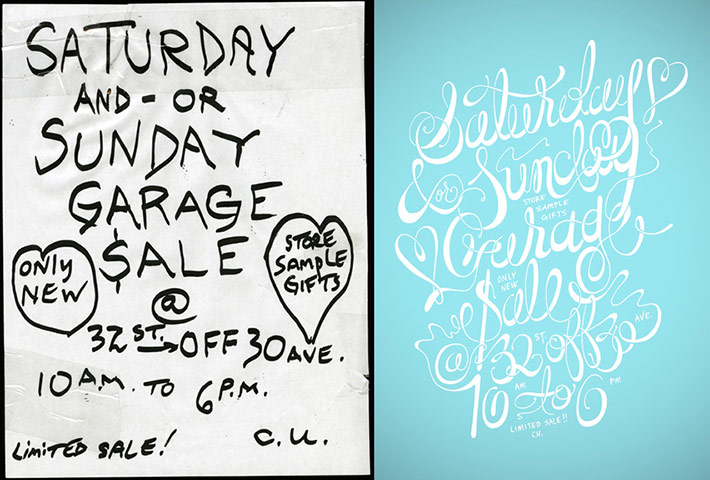 SATURDAY
AND-OR
SUNDAY
GARAGE
$ALE
ONLY
NEW
STORE
SAMPLE
GIFTS
@
32 ST. → OFF 30 AVE.
10 A.M. TO 6 P.M.
LIMITED SALE!
C.U.
Saturday
& or Sunday
STORE
SAMPLE
GIFTS
Garage
ONLY
NEW
$ale
@ 32 ST. off 30 AVE.
10 AM to 6 PM
LIMITED SALE!!
CU.